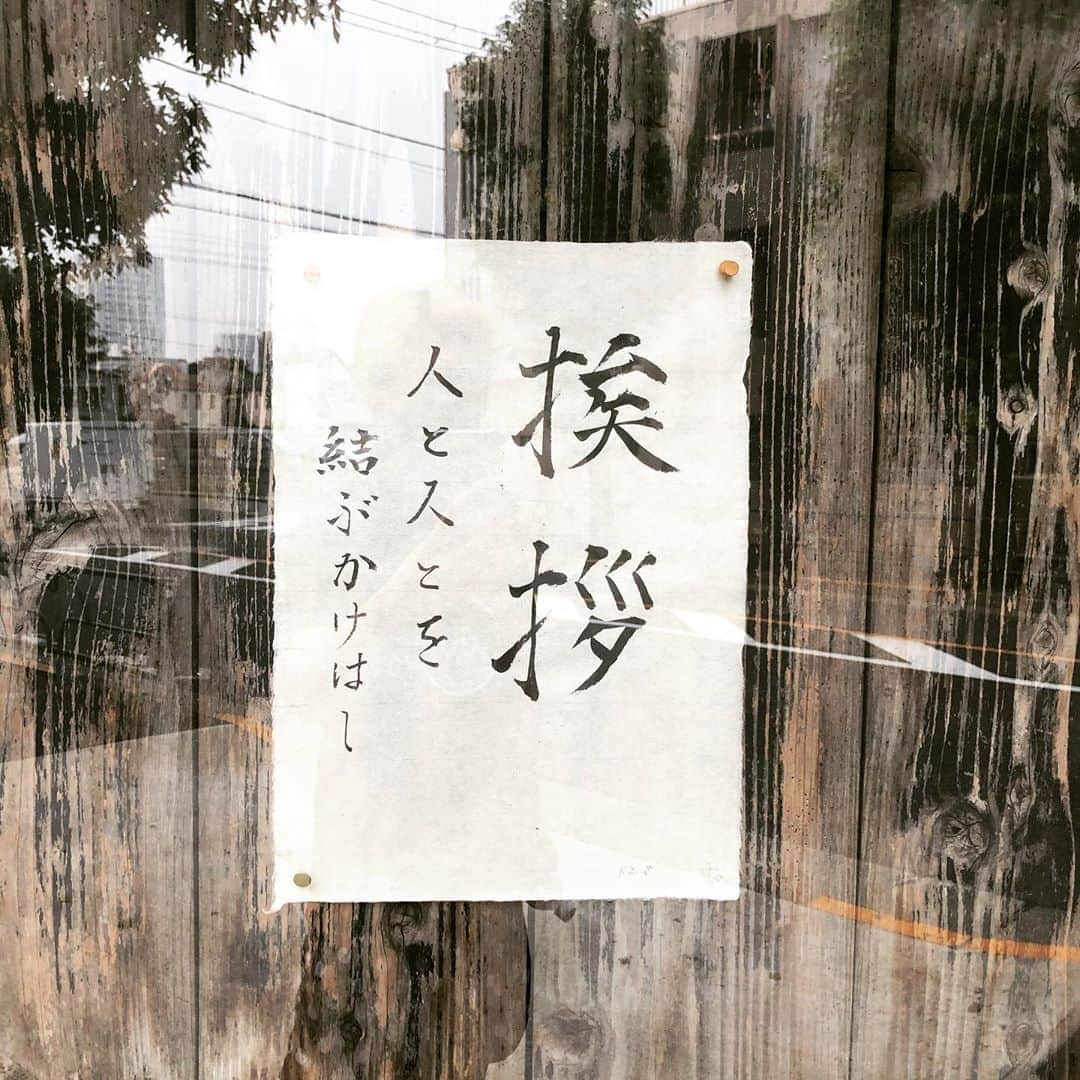 挨拶
人と人とを
結ぶかけはし